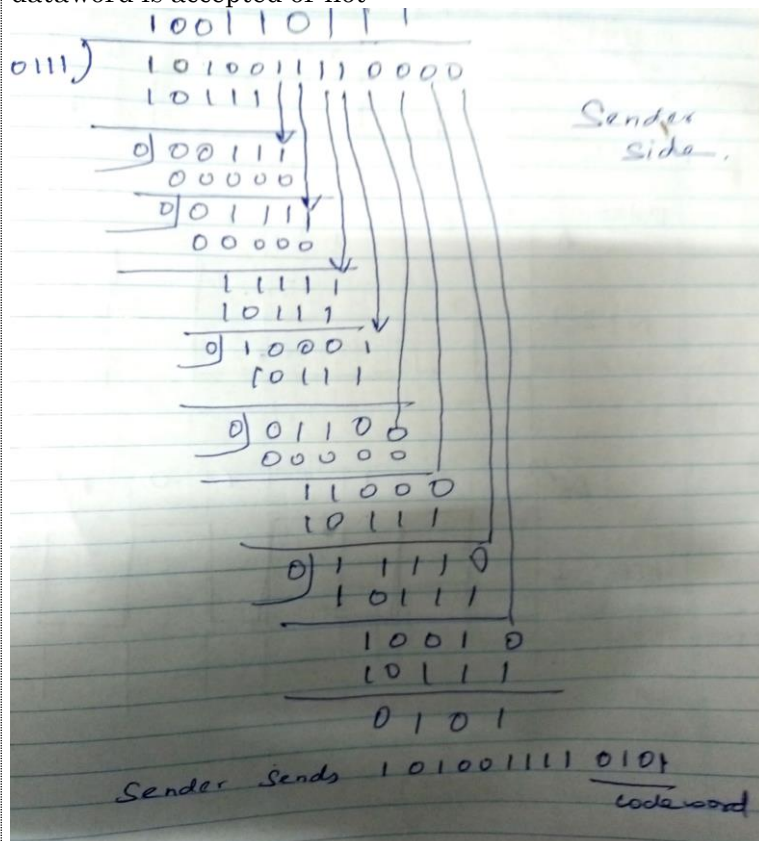 dataword is accepted or not
1 0 0 1 1 0 1 1 1
0111) 1 0 1 0 0 1 1 1 1 0 0 0 0
1 0 1 1 1
Sender
side.
0) 0 0 1 1 1
0 0 0 0 0
0) 0 1 1 1 1
0 0 0 0 0
1 1 1 1 1
1 0 1 1 1
0) 1 0 0 0 1
1 0 1 1 1
0) 0 1 1 0 0
0 0 0 0 0
1 1 0 0 0
1 0 1 1 1
0) 1 1 1 1 0
1 0 1 1 1
1 0 0 1 0
1 0 1 1 1
0 1 0 1
Sender Sends 1 0 1 0 0 1 1 1 1 0 1 0 1
codeword